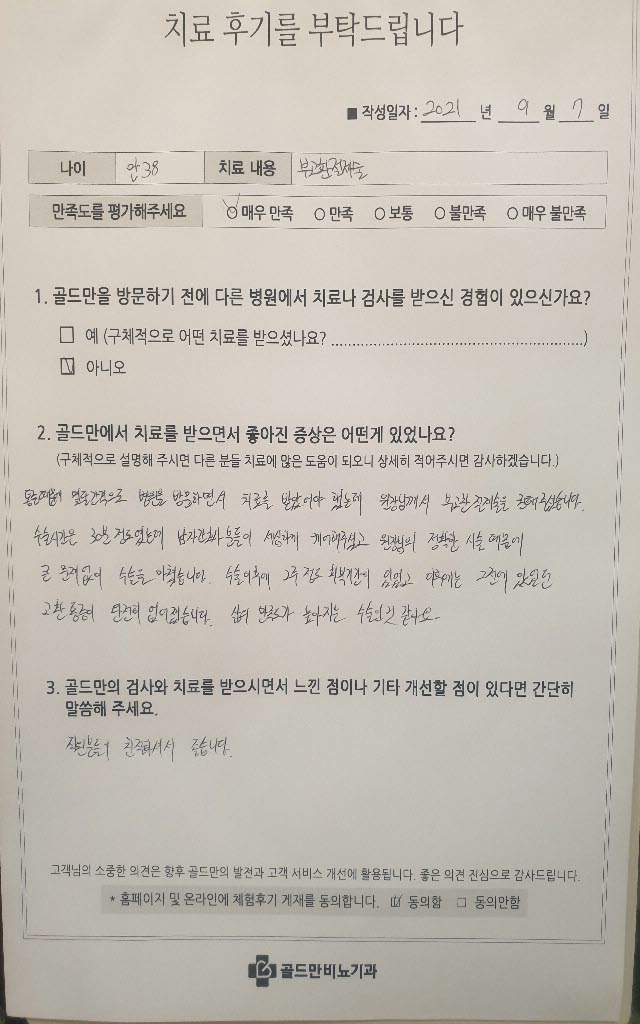 치료 후기를 부탁드립니다
■ 작성일자 : 2021 년 9 월 7 일
나이 만38 치료 내용 부고환절제술
만족도를 평가해주세요 매우 만족 만족 보통 불만족 매우 불만족
1. 골드만을 방문하기 전에 다른 병원에서 치료나 검사를 받으신 경험이 있으신가요?
예 (구체적으로 어떤 치료를 받으셨나요? ........................................................)
아니오
2. 골드만에서 치료를 받으면서 좋아진 증상은 어떤게 있었나요?
(구체적으로 설명해 주시면 다른 분들 치료에 많은 도움이 되오니 상세히 적어주시면 감사하겠습니다.)
통증때문에 몇달간격으로 병원을 방문하면서 치료를 받았어야 했는데 원장님께서 부고환절제술을 권해주셨습니다.
수술시간은 30분 정도였는데 남자간호사분들이 세심하게 케어해주셨고 원장님의 정확한 시술 때문에
큰 문제없이 수술을 마쳤습니다. 수술이후에 2주 정도 회복기간이 있었고 이후에는 그전에 있었던
고환 통증이 완전히 없어졌습니다. 삶의 만족도가 높아지는 수술인 것 같아요.
3. 골드만의 검사와 치료를 받으시면서 느낀 점이나 기타 개선할 점이 있다면 간단히
말씀해 주세요.
직원분들이 친절하셔서 좋습니다.
고객님의 소중한 의견은 향후 골드만의 발전과 고객 서비스 개선에 활용됩니다. 좋은 의견 진심으로 감사드립니다.
* 홈페이지 및 온라인에 체험후기 게재를 동의합니다. 동의함 동의안함
골드만비뇨기과